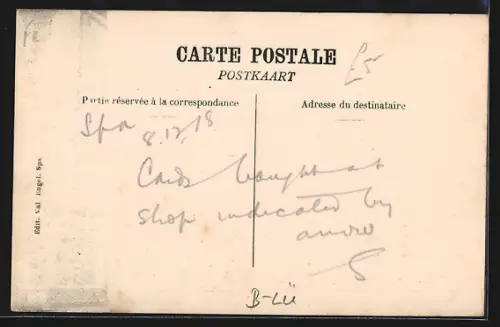 CARTE POSTALE
POSTKAART
£5
Partie réservée à la correspondance
Adresse du destinataire
Spa 8.12.18
Cards bought at
shop indicated by
arrow
S
B-Lü
Édit. Val. Engel. Spa